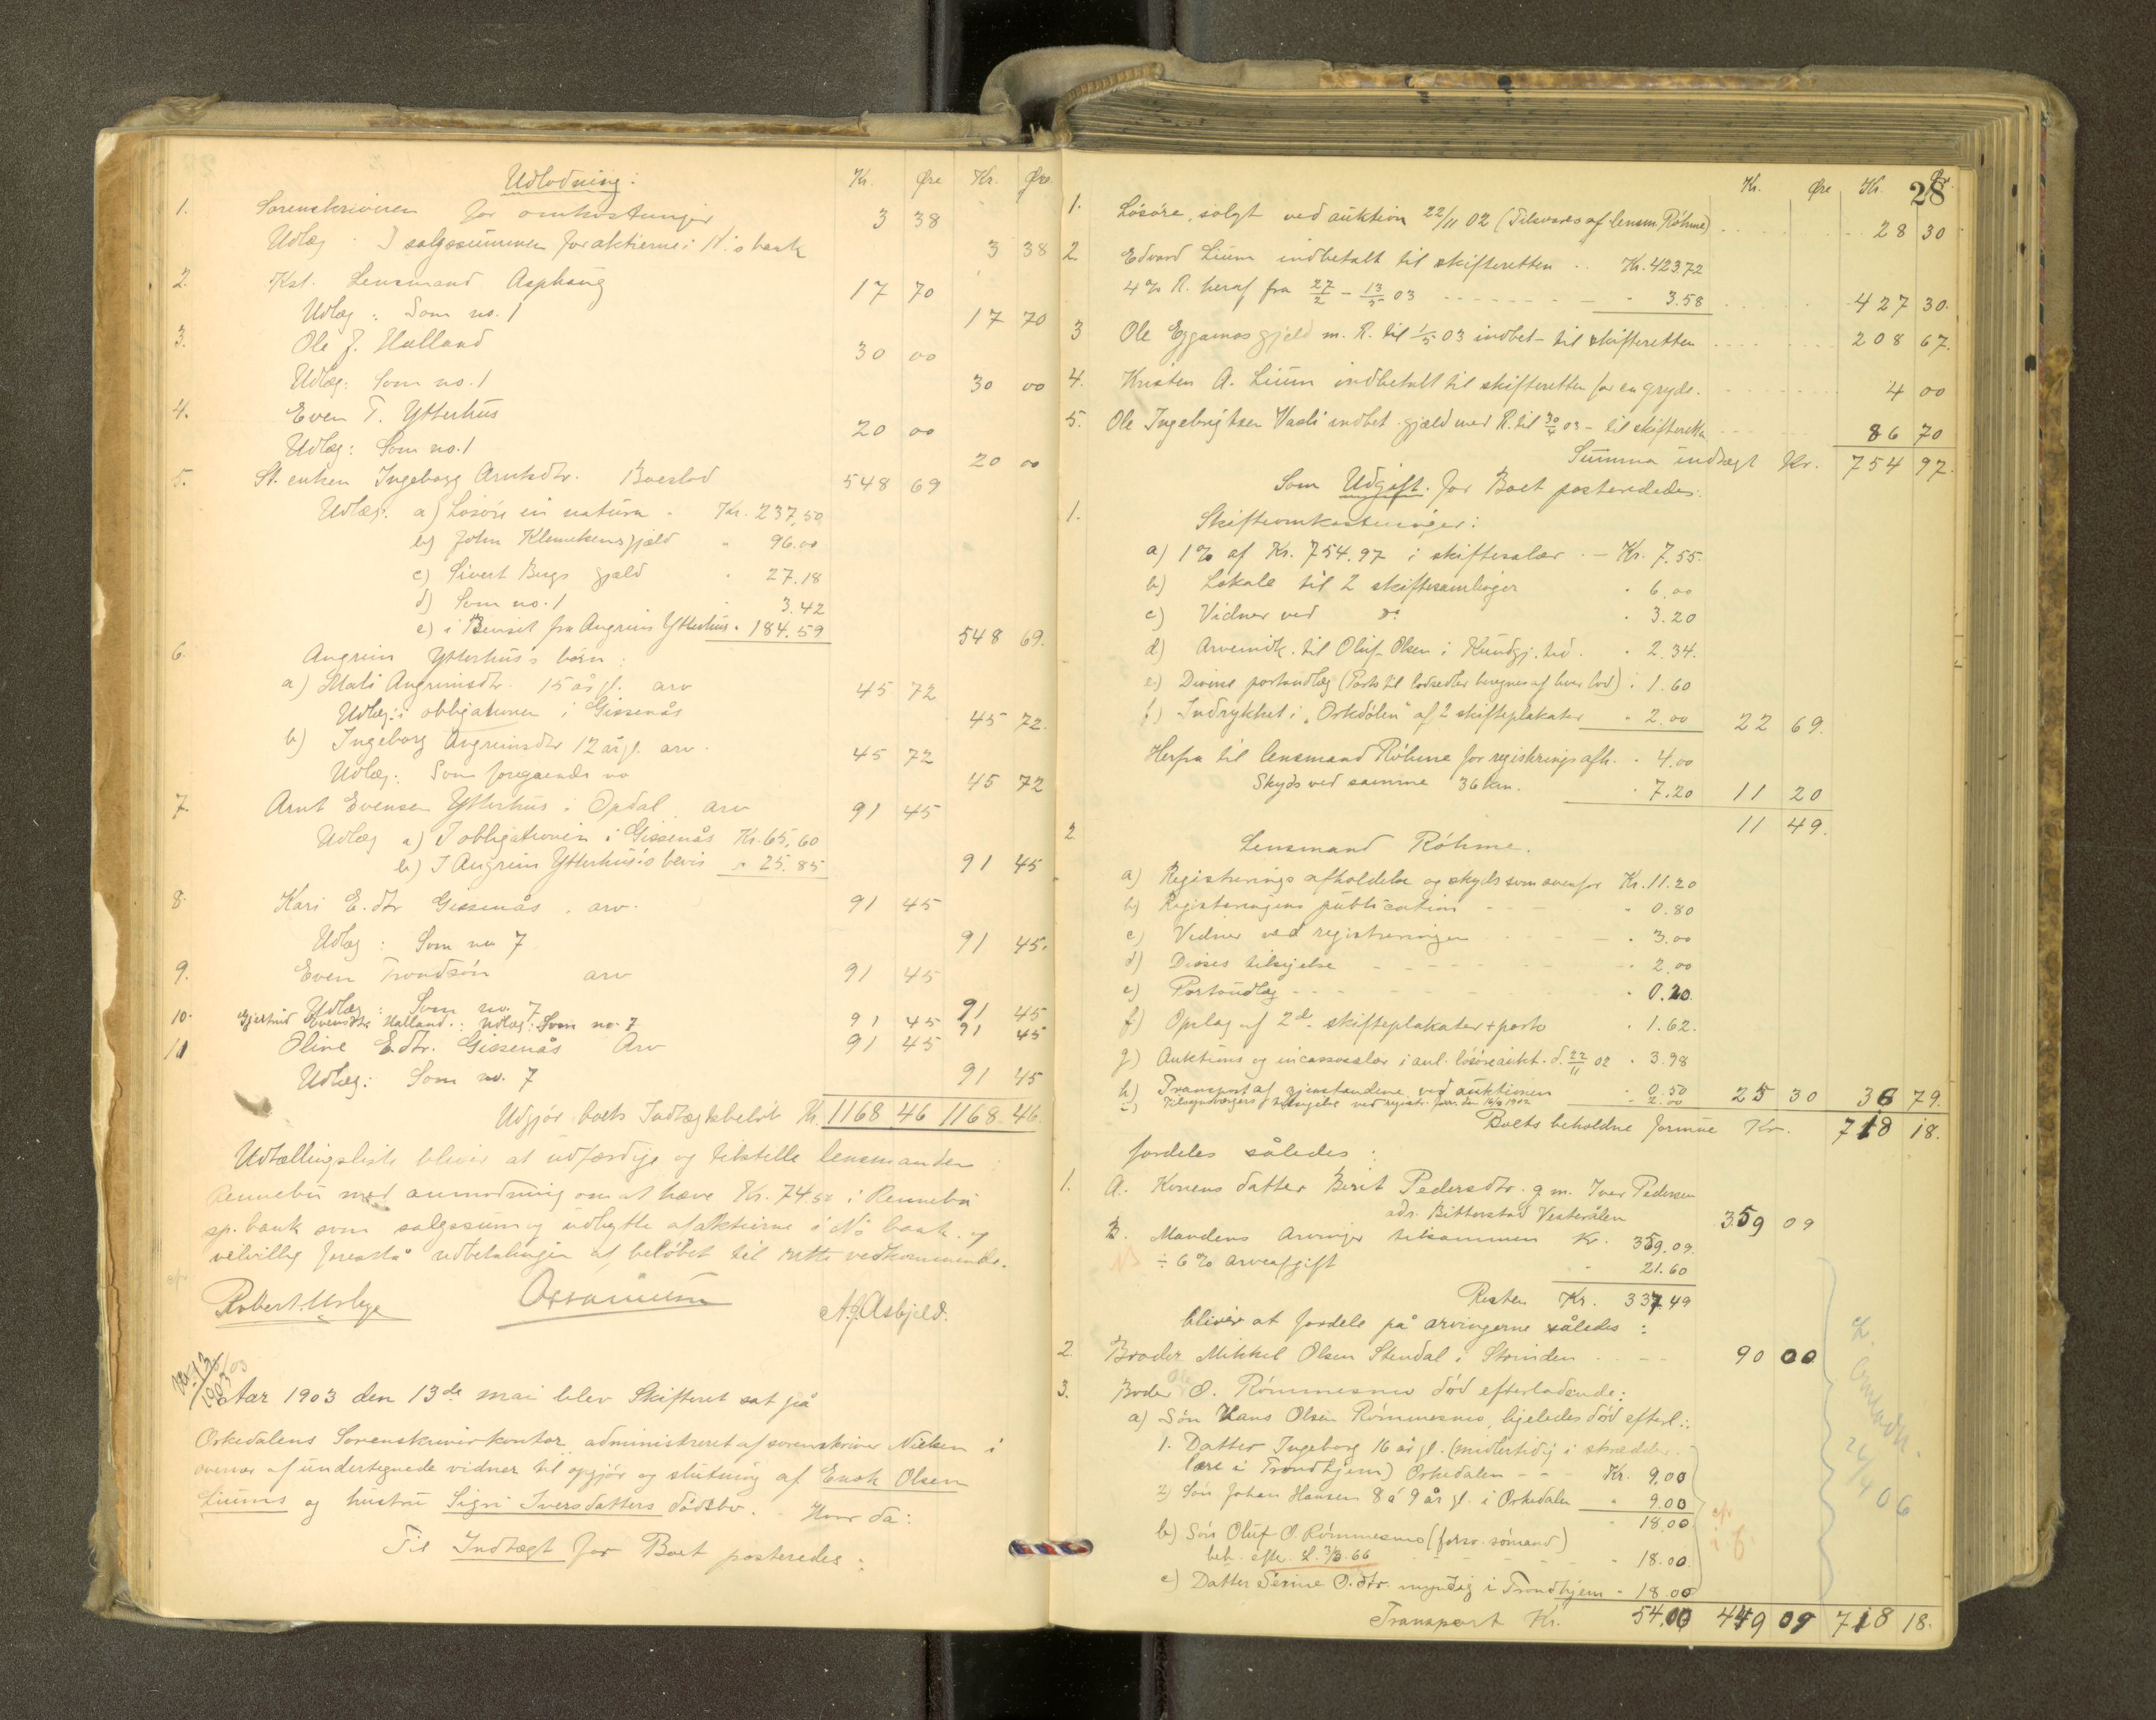 Udlodning: Kr. Øre Kr. Øre
1. Sorenskriveren for omkostninger 3 38
Udlæg: I salgssummen for aktierne i N.'s bank 3 38
2. Kst. Lensmand Asphaug 17 70
Udlæg: Som no. 1 17 70
3. Ole J. Halland 30 00
Udlæg: Som no. 1 30 00
4. Even T. Ytterhus 20 00
Udlæg: Som no. 1 20 00
5. St. enken Ingeborg Arntsdtr. Boeslod 548 69
Udlæg: a) Løsøre in natura - Kr. 237,50
b) John Klemetsens gjæld " 96.00
c) Sivert Bergs gjæld " 27.18
d) Som no. 1 " 3.42
e) i Beviset fra Angrim Ytterhus " 184.59 548 69.
6. Angrim Ytterhus's børn:
a) Mali Angrimsdtr. 15 år gl. arv 45 72
Udlæg: i obligationen i Gissenås 45 72.
b) Ingeborg Angrimsdtr 12 år gl. arv. 45 72
Udlæg: Som foregaaende no 45 72
7. Arnt Evensen Ytterhus i Opdal arv 91 45
Udlæg a) I obligationen i Gissenås Kr. 65,60
b) I Angrim Ytterhus's bevis " 25.85 91 45
8. Kari E. dtr Gissenås. arv. 91 45
Udlæg: Som no 7 91 45.
9. Even Trondsøn arv 91 45
Udlæg: Som no. 7 91 45
10. Gjertrud Evensdtr Halland.: Udlæg: Som no. 7 91 45 91 45
11 Oline E. dtr. Gissenås Arv 91 45
Udlæg: Som no. 7 91 45
Udgjør boets Indtægtsbeløb Kr. 1168 46 1168 46.
Udtællingsliste bliver at udfærdige og tilstille lensmanden i
Rennebu med anmodning om at hæve Kr. 74.50 i Rennebu
sp. bank som salgssum og udbytte af aktierne i N's bank og
velvillig forestå udbetalingen af beløbet til rette vedkommende.
Robert Uslye A. J. Asbjeld.
No 13/1903
Aar 1903 den 13de mai blev Skifteret sat på
Orkedalens Sorenskriverkontor, administreret af sorenskriver Nielsen i
overvær af undertegnede vidner til opgjør og slutning af Enok Olsen
Liums og hustru Sigri Iversdatters dødsbo. Hvor da:
Til Indtægt for Boet posteredes:
28
Kr. Øre Kr. Ør.
1. Løsøre, solgt ved auktion 22/11 02 (Tilsvares af lensm. Röhme) 28 30
2 Edvard Lium indbetalt til skifteretten Kr. 423.72
4% R. heraf fra 27/2 - 13/5 03 " 3.58 427 30.
3 Ole Eggamos gjæld m. R. til 1/5 03 indbet. til skifteretten 208 67.
4. Kristen A. Lium indbetalt til skifteretten for en gryde. 4 00
5. Ole Ingebrigtsen Vasli indbet. gjæld med R. til 30/4 03 - til skifteretten 86 70
Summa indtægt Kr. 754 97.
Som Udgift for Boet posteredes:
1. Skifteomkostninger:
a) 1% af Kr. 754.97 i skiftesalær - Kr. 7.55.
b) Lokale til 2 skiftesamlinger " 6.00
c) Vidner ved do " 3.20
d) Arveindk. til Oluf Olsen i Kundgj. tid. " 2.34.
e) Diverse portoudlæg (Porto til lodsedler beregnes af hver lod) " 1.60
f) Indrykket i "Orkdølen" af 2 skifteplakater " 2.00 22 69.
Herfra til lensmand Röhme for registrings afh. " 4.00
Skyds ved samme 36 km. " 7.20 11 20
11 49.
2. Lensmand Röhme.
a) Registrerings afholdelse og skyds som ovenfor Kr. 11.20
b) Registreringens publication " 0.80
c) Vidner ved registreringen " 3.00
d) Disses tilsigelse " 2.00
e) Portoudlæg " 0.20.
f) Opslag af 2de skifteplakater + porto " 1.62.
g) Auktions og incassosalær i anl. løsøreaukt. d. 22/11 02 " 3.98
h) Transport af gjenstandene ved auktionen " 0.50
i) Tilsynsværgers tilsigelse ved registr. forr. den 16/9 1902 " 2.00 25 30 36 79.
Boets beholdne formue Kr. 718 18.
fordeles således:
1. A. Konens datter Berit Pedersdtr. g. m. Iver Pedersen
adr. Bitterstad Vesterålen 359 09
B. Mandens Arvinger tilsammen Kr. 359.09.
÷ 6% arveafgift " 21.60
Resten Kr. 337.49
bliver at fordele på arvingerne således:
2. Broder Mikkel Olsen Stendal i Strinden 90 00
3. Broder O. Römmesmo død efterladende:
a) Søn Hans Olsen Römmesmo, ligeledes død efterl.:
1. Datter Ingeborg 16 år gl. (midlertidig i skrædder-
lære i Trondhjem) Orkedalen - - Kr. 9.00
2) Søn Johan Hansen 8 á 9 år gl. i Orkedalen " 9.00
" 18.00
b) Søn Oluf O. Römmesmo (forsv. sømand)
beh. efter L. 3/3. 66 " 18.00.
c) Datter Serine O. dtr. myndig i Trondhjem - 18.00
26/4 06
Transport Kr. 54.00 449 09 718 18.